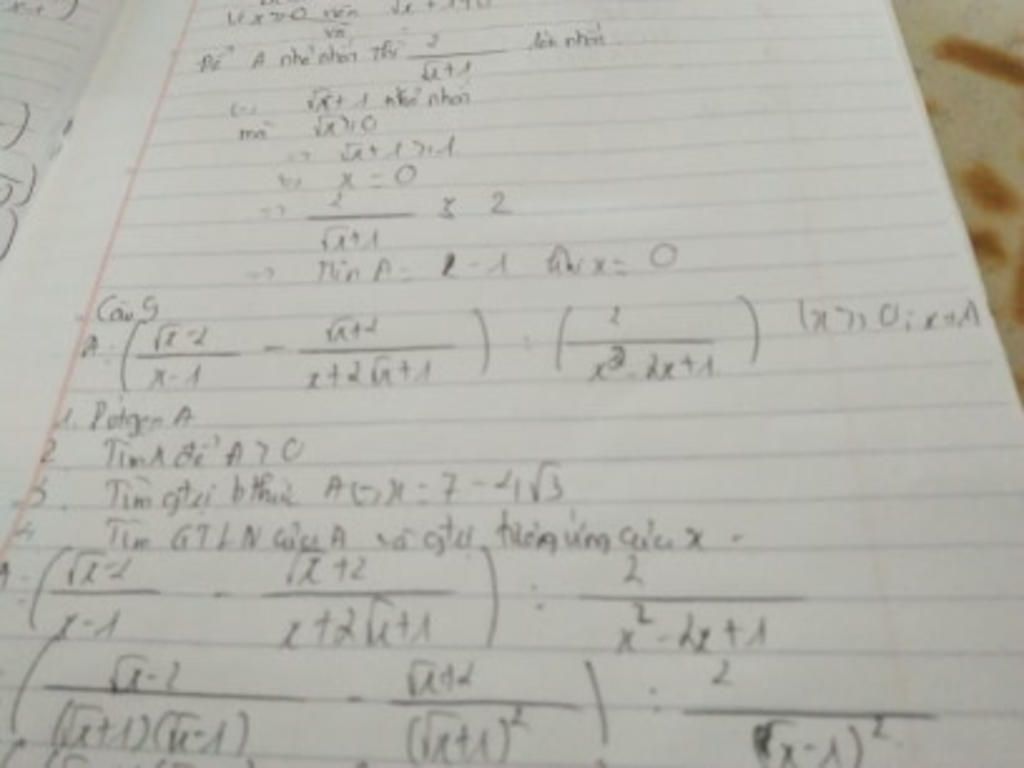 Để A nhỏ nhất thì 2/(√x+1) lớn nhất.
√x+1 nhỏ nhất
mà √x ≥ 0
=> √x+1 ≥ 1
x = 0
=> 2/(√x+1) ≤ 2
=> Min A = -1 khi x = 0
Câu 5
A = ( (√x-2)/(x-1) - (√x+2)/(x+2√x+1) ) : ( 2/(x²-2x+1) ) (x ≥ 0; x≠1)
1. Rút gọn A
2 Tìm x để A > 0
3. Tìm gtrị bthức A x = 7 - 4√3
4. Tìm GTLN của A và gtrị tương ứng của x.
A = ( (√x-2)/(x-1) - (√x+2)/(x+2√x+1) ) : 2/(x²-2x+1)
( (√x-2)/((√x+1)(√x-1)) - (√x+2)/(√x+1)² ) : 2/(x-1)²